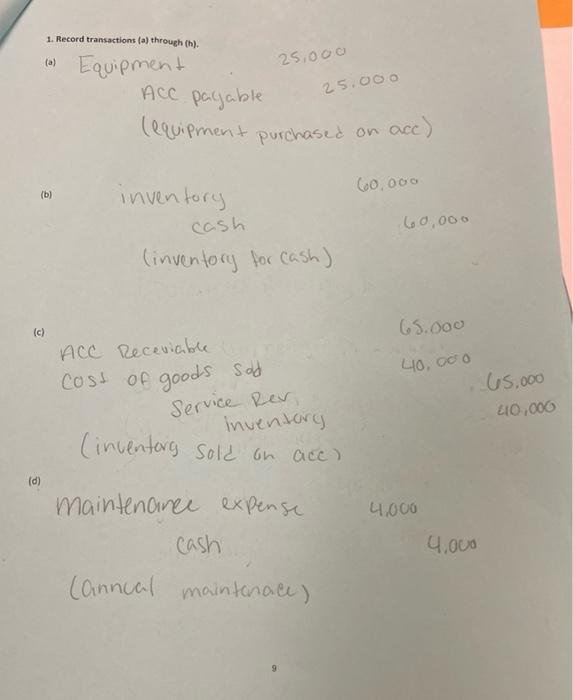 1. Record transactions (a) through (h).
(a) Equipment 25,000
Acc payable 25,000
(equipment purchased on acc)
(b) inventory 60,000
cash 60,000
(inventory for cash)
(c) Acc Receviable 65,000
Cost of goods Sold 40,000
Service Rev 65,000
inventory 40,000
(inventory Sold on acc)
(d)
Maintenance expense 4,000
cash 4,000
(annual maintenace)
9